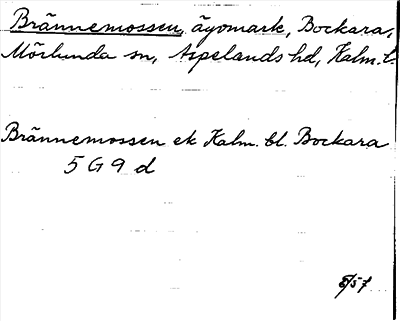 Brännemossen, ägomark, Bockara,
Mörlunda sn, Aspelands hd, Kalm. l.
Brännemossen ek Kalm. bl. Bockara
5 G 9 d